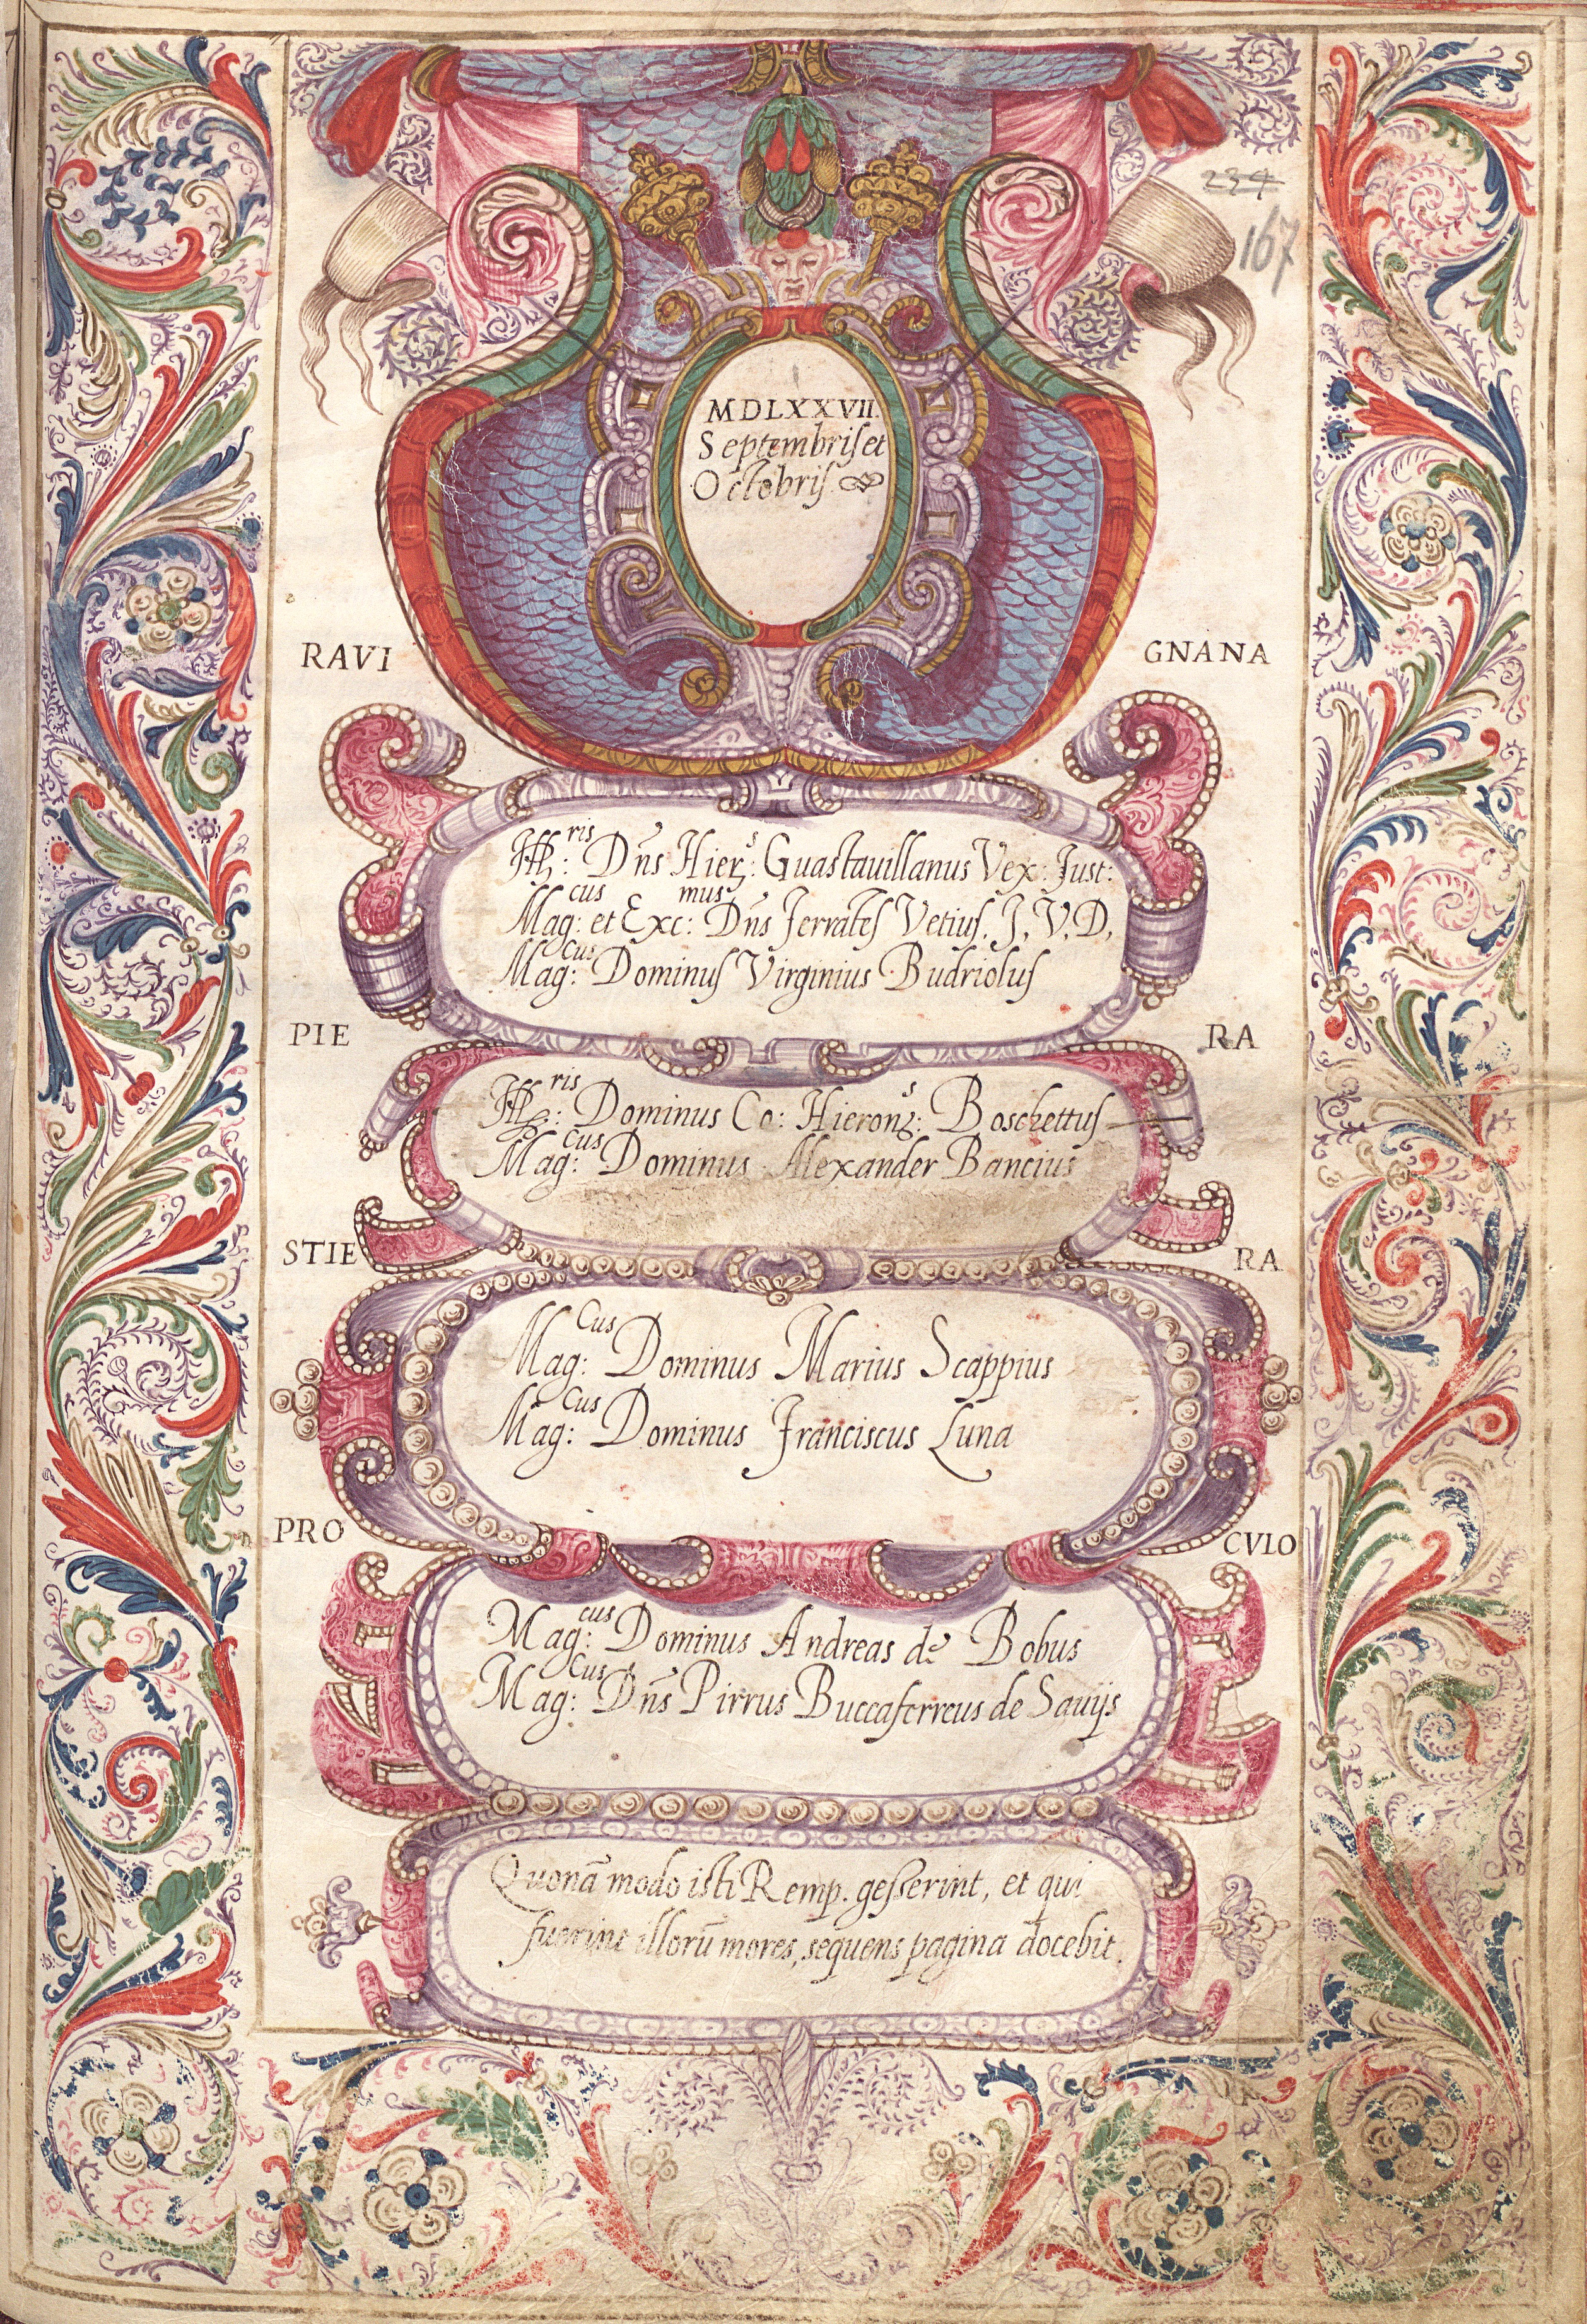 234
167
MDLXXVII.
Septembris et
Octobris
RAVI GNANA
Ill:ris Dns Hier:s Guastauillanus Vex: Just:
Mag:cus et Exc:mus Dns Ferrates Vetius, J, V, D,
Mag:cus Dominus Virginius Budriolus
PIE RA
Ill:ris Dominus Co: Hieron:s Boschettus
Mag:cus Dominus Alexander Bancius
STIE RA
Mag:cus Dominus Marius Scappius
Mag:cus Dominus Franciscus Luna
PRO CVLO
Mag:cus Dominus Andreas de Bobus
Mag:cus Dns Pirrus Buccaferreus de Sauijs
Quonã modo isti Remp. gesserint, et qui
fuerint illorũ mores, sequens pagina docebit.